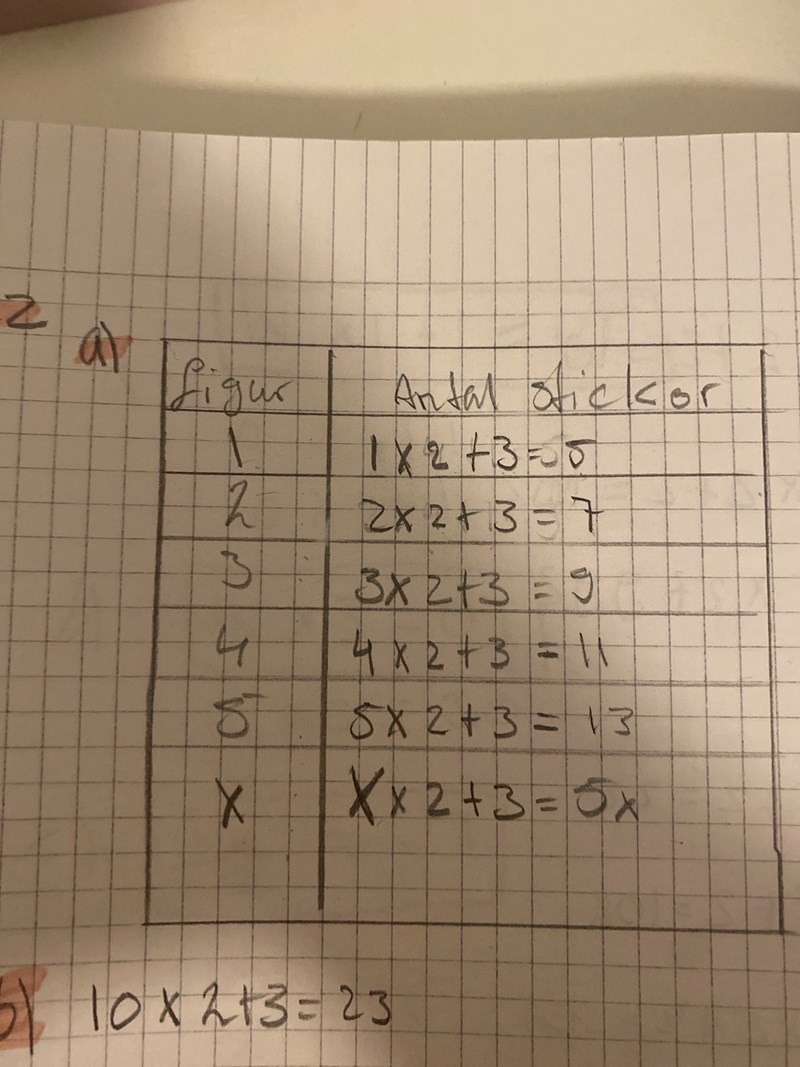 2
a)
figur Antal stickor
1 1x2+3=5
2 2x2+3=7
3 3x2+3=9
4 4x2+3=11
5 5x2+3=13
x Xx2+3=5x
b) 10x2+3=23